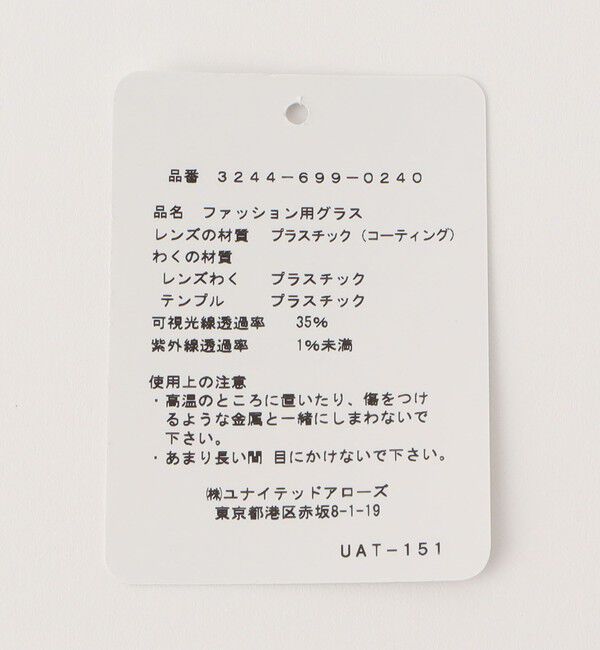 品番 3244-699-0240
品名 ファッション用グラス
レンズの材質 プラスチック(コーティング)
わくの材質
レンズわく プラスチック
テンプル プラスチック
可視光線透過率 35%
紫外線透過率 1%未満
使用上の注意
・高温のところに置いたり、傷をつけ
るような金属と一緒にしまわないで
下さい。
・あまり長い間 目にかけないで下さい。
㈱ユナイテッドアローズ
東京都港区赤坂8-1-19
UAT-151